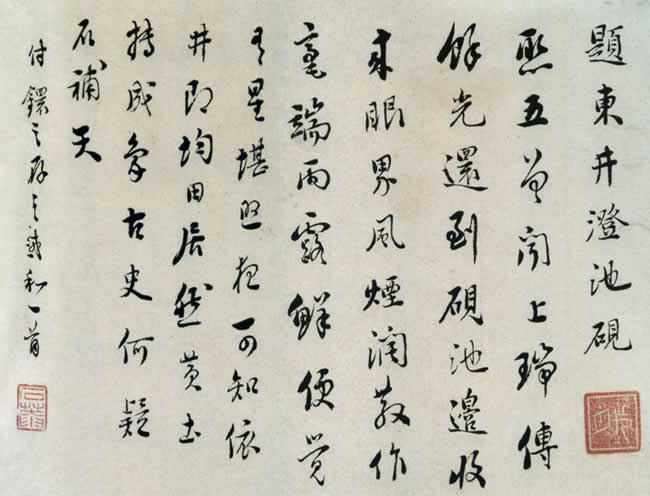 題東井澄池硯
聚五曾聞上瑞傳
餘光還到硯池邊收
來眼界風煙潤散作
毫端雨露鮮便覺
有星堪照夜可知依
井即均田居然黃土
摶成象古史何疑
石補天
付鐶之存之和一首
石菴